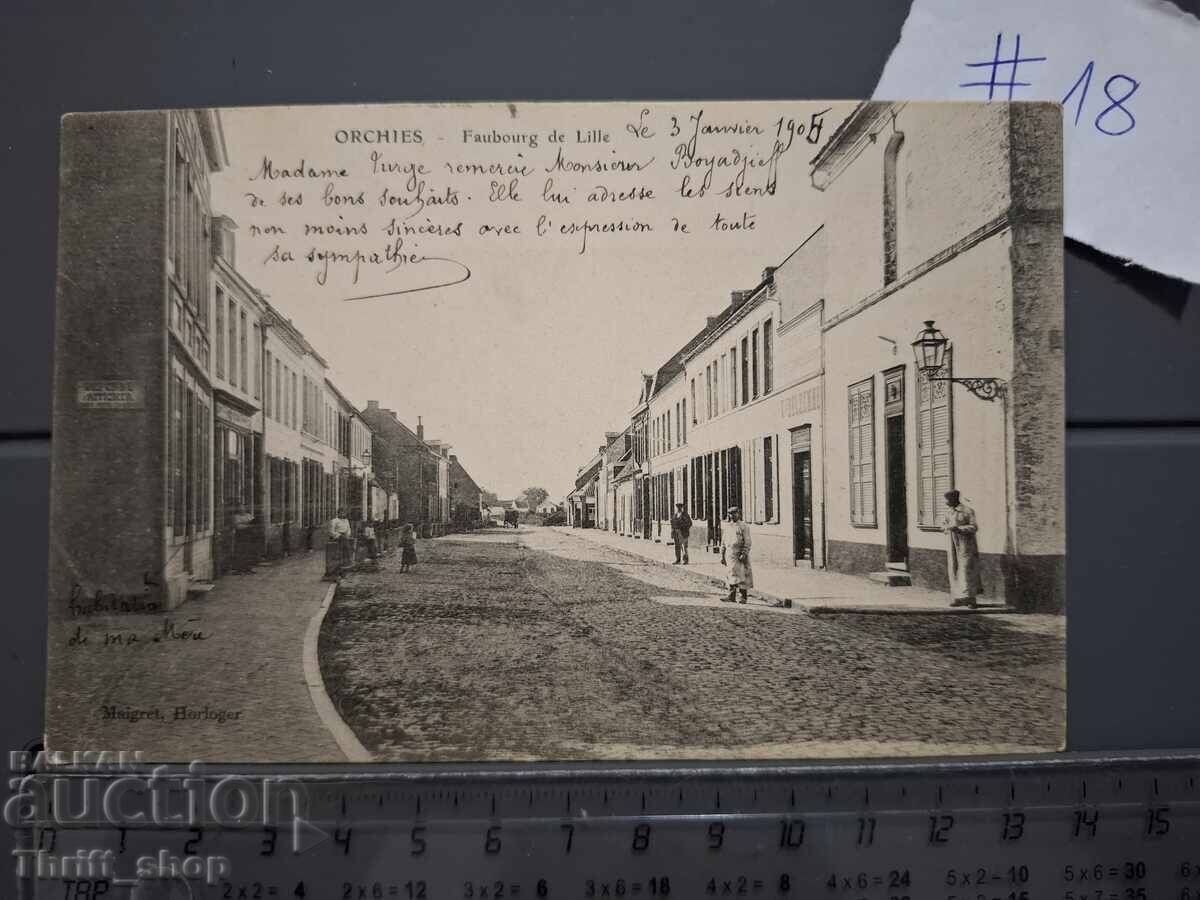 # 18
ORCHIES - Faubourg de Lille
Le 3 Janvier 190
Madame remercie Monsieur Boyadjieff
de ses bons souhaits. Elle lui adresse les siens
non moins sincères avec l'expression de toute
sa sympathie
habitation
de ma Mère
Maigret, Horloger
BALKAN
auction
Thrift_shop
0 1 2 3 4 5 6 7 8 9 10 11 12 13 14 15
2 x 2 = 4 2 x 6 = 12 3 x 2 = 6 3 x 6 = 18 4 x 2 = 8 4 x 6 = 24 5 x 2 = 10 5 x 6 = 30
5 x 7 = 35